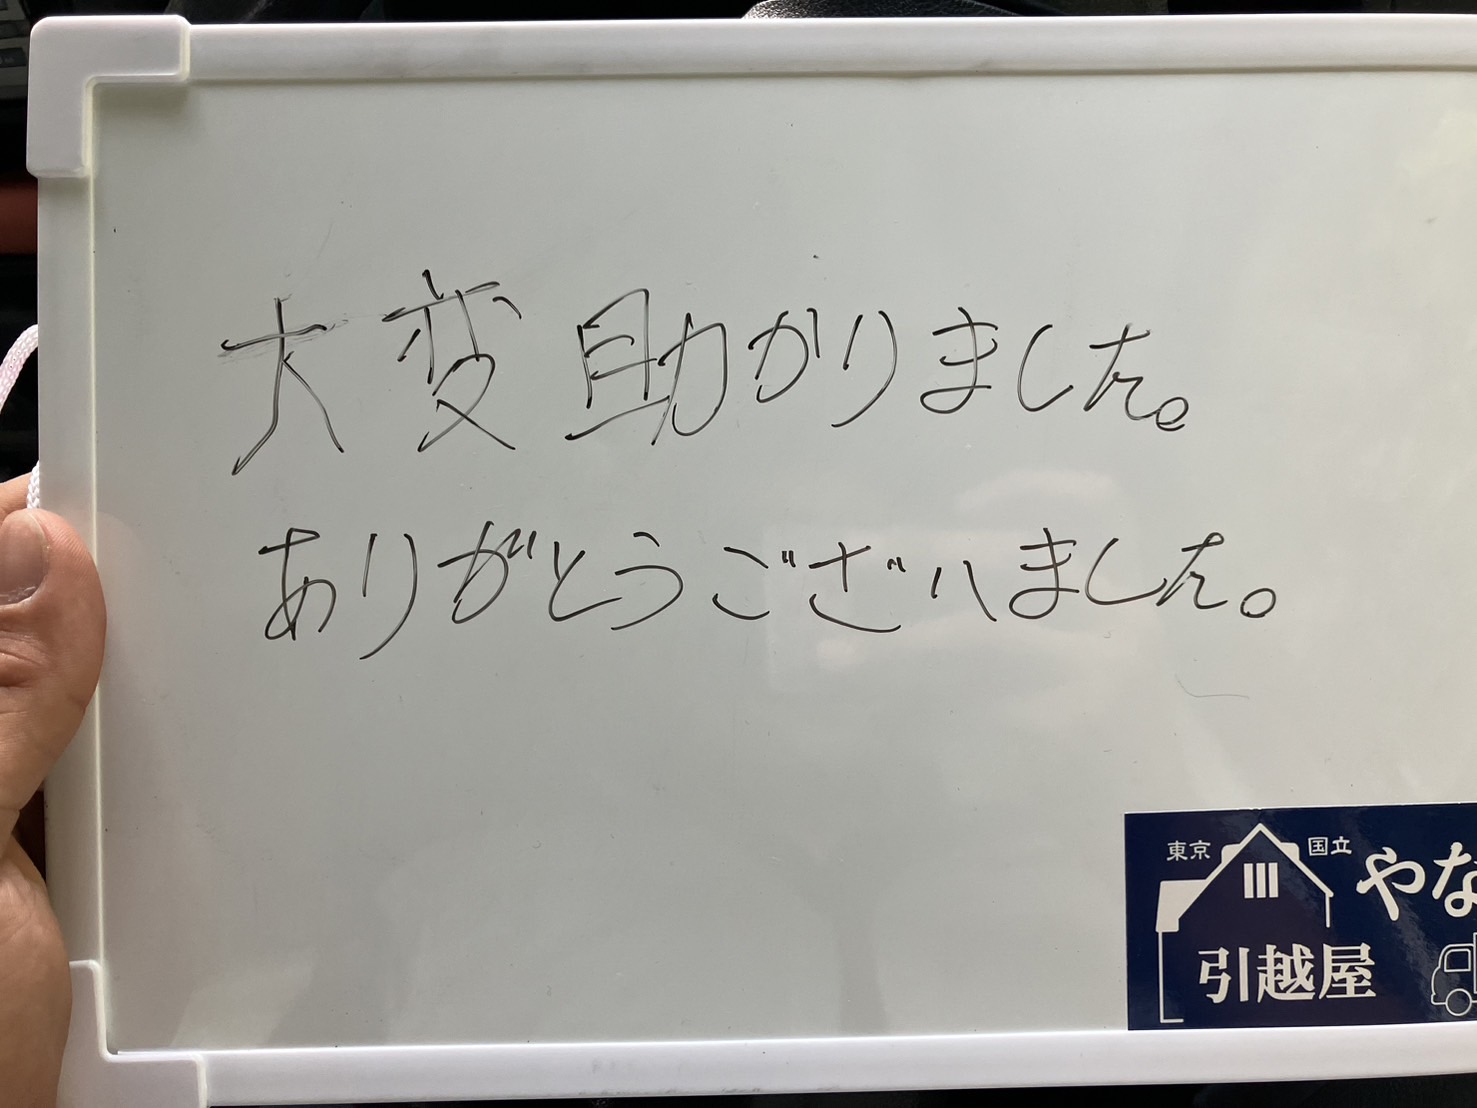 大変助かりました。
ありがとうございました。
東京 国立
やな
引越屋